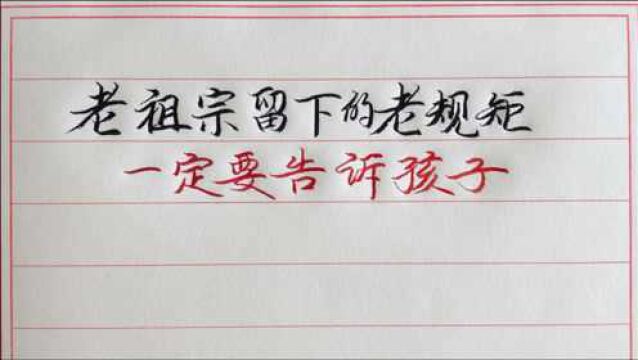 老祖宗留下的老规矩
一定要告诉孩子